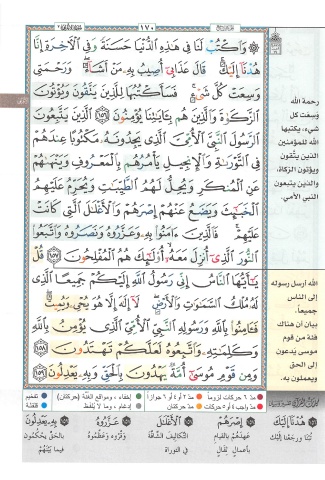 ١٧٠
وَٱكْتُبْ لَنَا فِى هَٰذِهِ ٱلدُّنْيَا حَسَنَةً وَفِى ٱلْءَاخِرَةِ إِنَّا
هُدْنَآ إِلَيْكَ ۚ قَالَ عَذَابِىٓ أُصِيبُ بِهِۦ مَنْ أَشَآءُ ۖ وَرَحْمَتِى
وَسِعَتْ كُلَّ شَىْءٍ ۚ فَسَأَكْتُبُهَا لِلَّذِينَ يَتَّقُونَ وَيُؤْتُونَ
ٱلزَّكَوٰةَ وَٱلَّذِينَ هُم بِـَٔايَٰتِنَا يُؤْمِنُونَ ١٥٦ ٱلَّذِينَ يَتَّبِعُونَ
ٱلرَّسُولَ ٱلنَّبِىَّ ٱلْأُمِّىَّ ٱلَّذِى يَجِدُونَهُۥ مَكْتُوبًا عِندَهُمْ
فِى ٱلتَّوْرَىٰةِ وَٱلْإِنجِيلِ يَأْمُرُهُم بِٱلْمَعْرُوفِ وَيَنْهَىٰهُمْ
عَنِ ٱلْمُنكَرِ وَيُحِلُّ لَهُمُ ٱلطَّيِّبَٰتِ وَيُحَرِّمُ عَلَيْهِمُ
ٱلْخَبَٰٓئِثَ وَيَضَعُ عَنْهُمْ إِصْرَهُمْ وَٱلْأَغْلَٰلَ ٱلَّتِى كَانَتْ
عَلَيْهِمْ ۚ فَٱلَّذِينَ ءَامَنُوا۟ بِهِۦ وَعَزَّرُوهُ وَنَصَرُوهُ وَٱتَّبَعُوا۟
ٱلنُّورَ ٱلَّذِىٓ أُنزِلَ مَعَهُۥٓ ۙ أُو۟لَٰٓئِكَ هُمُ ٱلْمُفْلِحُونَ ١٥٧ قُلْ
يَٰٓأَيُّهَا ٱلنَّاسُ إِنِّى رَسُولُ ٱللَّهِ إِلَيْكُمْ جَمِيعًا ٱلَّذِى
لَهُۥ مُلْكُ ٱلسَّمَٰوَٰتِ وَٱلْأَرْضِ ۖ لَآ إِلَٰهَ إِلَّا هُوَ يُحْىِۦ وَيُمِيتُ ۖ
فَـَٔامِنُوا۟ بِٱللَّهِ وَرَسُولِهِ ٱلنَّبِىِّ ٱلْأُمِّىِّ ٱلَّذِى يُؤْمِنُ بِٱللَّهِ
وَكَلِمَٰتِهِۦ وَٱتَّبِعُوهُ لَعَلَّكُمْ تَهْتَدُونَ ١٥٨
وَمِن قَوْمِ مُوسَىٰٓ أُمَّةٌ يَهْدُونَ بِٱلْحَقِّ وَبِهِۦ يَعْدِلُونَ ١٥٩
رحمة الله
وسعت كل
شيء، يكتبها
الله للمؤمنين
الذين يتّقون
ويؤتون الزكاة،
والذين يتبعون
النبي الأمي.
الله أرسل رسوله
إلى الناس
جميعاً.
بيان أن هناك
فئة من قوم
موسى يدعون
إلى الحق
ويعملون به.
مد ٦ حركات لزوماً
مد ٢ أو ٤ أو ٦ جوازاً
إخفاء، ومواقع الغنّة (حركتان)
تفخيم
مد واجب ٤ أو ٥ حركات
مد حركتان
إدغام، وما لا يُلفظ
قلقلة
هُدْنَا إِلَيْكَ
تُبْنَا وَرَجَعْنَا إِلَيْكَ
إِصْرَهُمْ
عَهْدَهُمْ بِالْقِيَامِ
بِأَعْمَالٍ ثِقَالٍ
الْأَغْلَالَ
التَّكَالِيفَ الشَّاقَّةَ
فِي التَّوْرَاةِ
عَزَّرُوهُ
وَقَّرُوهُ وَعَظَّمُوهُ
بِهِ يَعْدِلُونَ
بِالْحَقِّ يَحْكُمُونَ
فِيمَا بَيْنَهُمْ